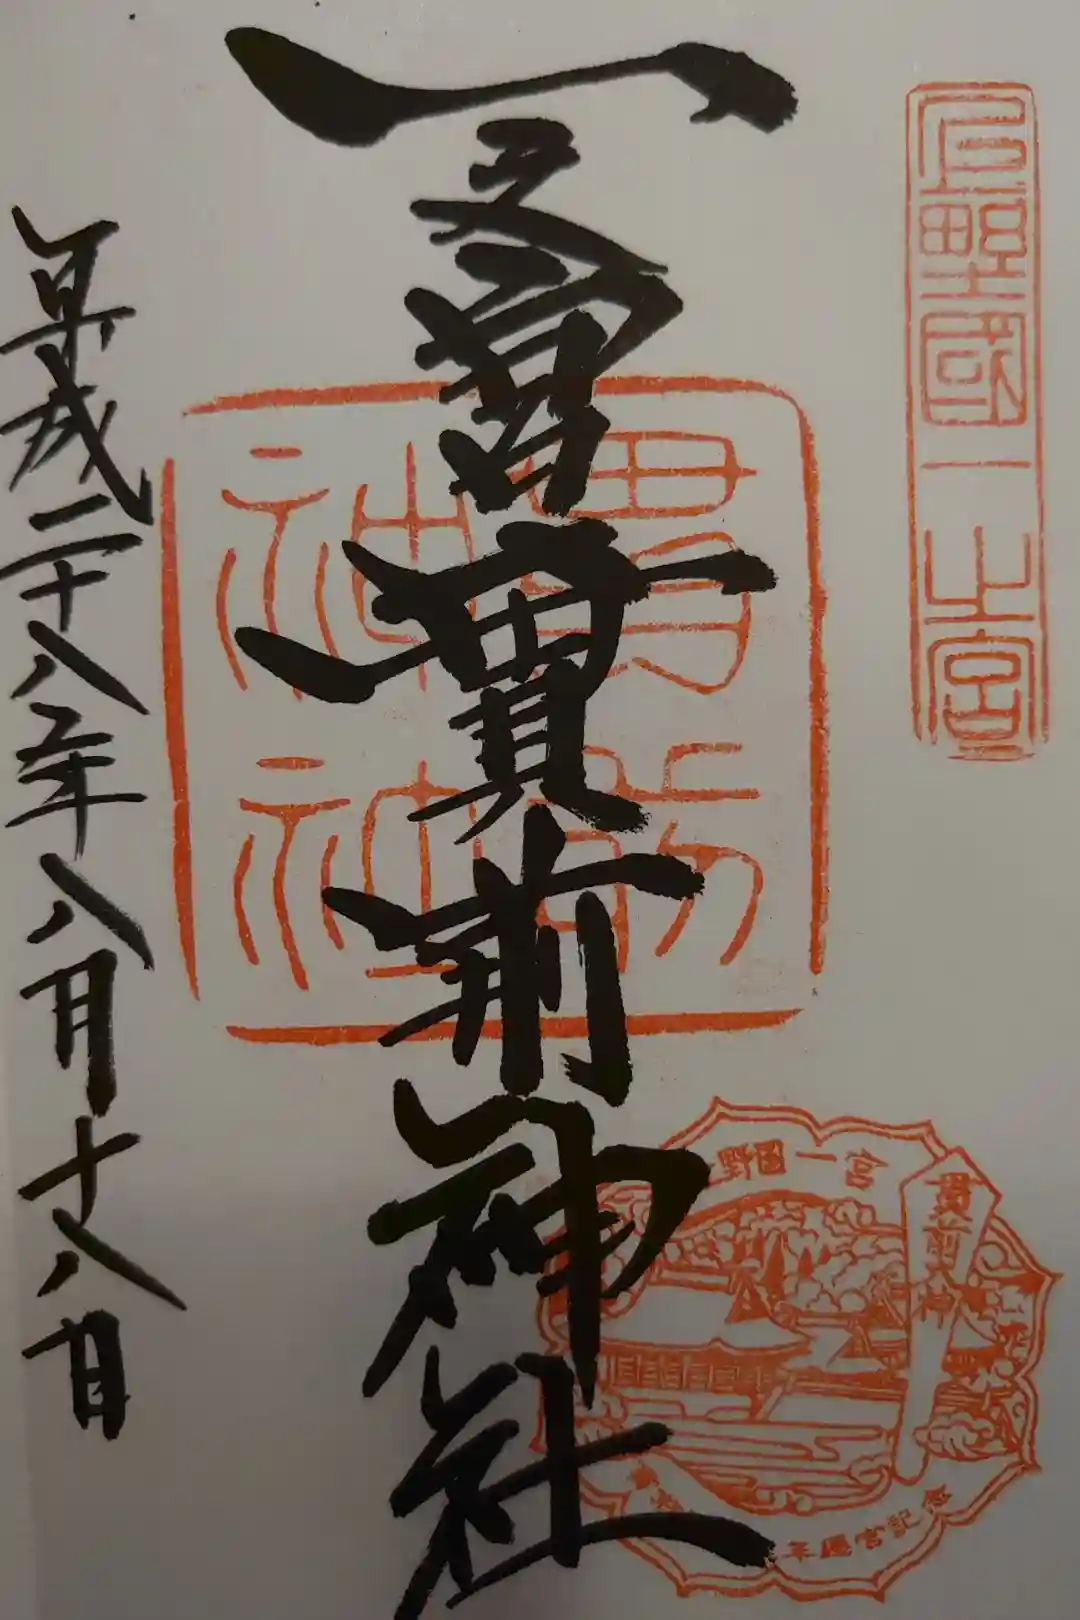 上野國一之宮
一之宮貫前神社
貫前
神社
野國一宮
貫前神
年遷宮記念
平成二十八年八月十八日